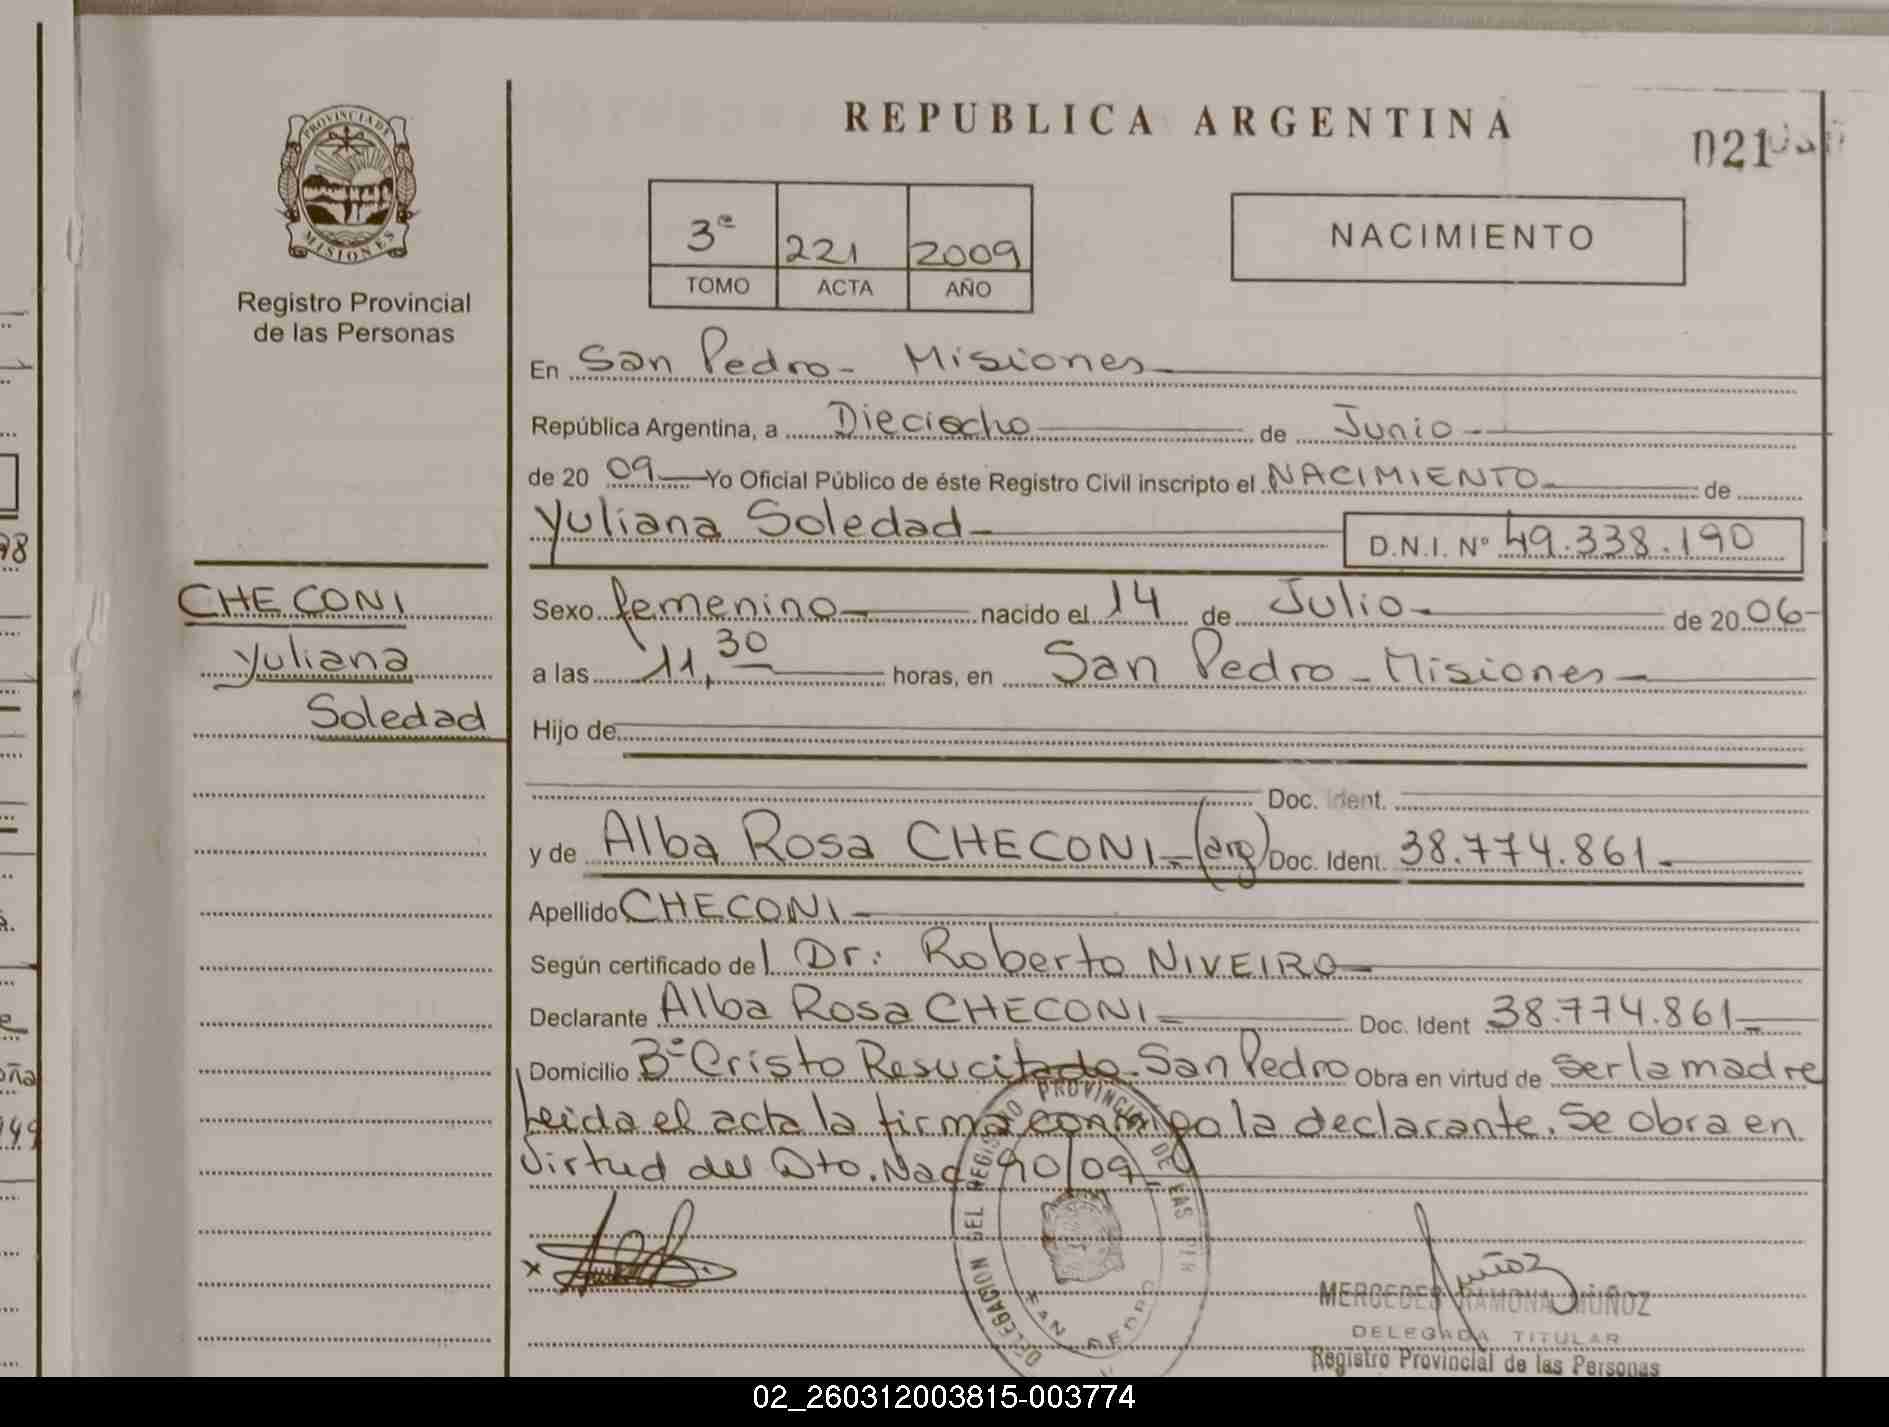 REPUBLICA ARGENTINA
021
PROVINCIA DE
MISIONES
Registro Provincial
de las Personas
3º 221 2009
TOMO ACTA AÑO
NACIMIENTO
En San Pedro - Misiones
República Argentina, a Dieciocho de Junio
de 20 09 Yo Oficial Público de éste Registro Civil inscripto el NACIMIENTO de
Yuliana Soledad D.N.I. Nº 49.338.190
CHECONI
Yuliana
Soledad
Sexo femenino nacido el 14 de Julio de 20 06
a las 11,30 horas, en San Pedro - Misiones
Hijo de
Doc. Ident.
y de Alba Rosa CHECONI - (arg) Doc. Ident. 38.774.861
Apellido CHECONI
Según certificado del Dr: Roberto NIVEIRO
Declarante Alba Rosa CHECONI Doc. Ident 38.774.861
Domicilio Bº Cristo Resucitado - San Pedro Obra en virtud de ser la madre
Leida el acta la firma conmigo la declarante. Se obra en
virtud del Dto. Nac 90/09
DELEGACION DEL REGISTRO PROVINCIAL DE LAS PER
SAN PEDRO
x
Muñoz
MERCEDES RAMONA MUÑOZ
DELEGADA TITULAR
Registro Provincial de las Personas
02_260312003815-003774